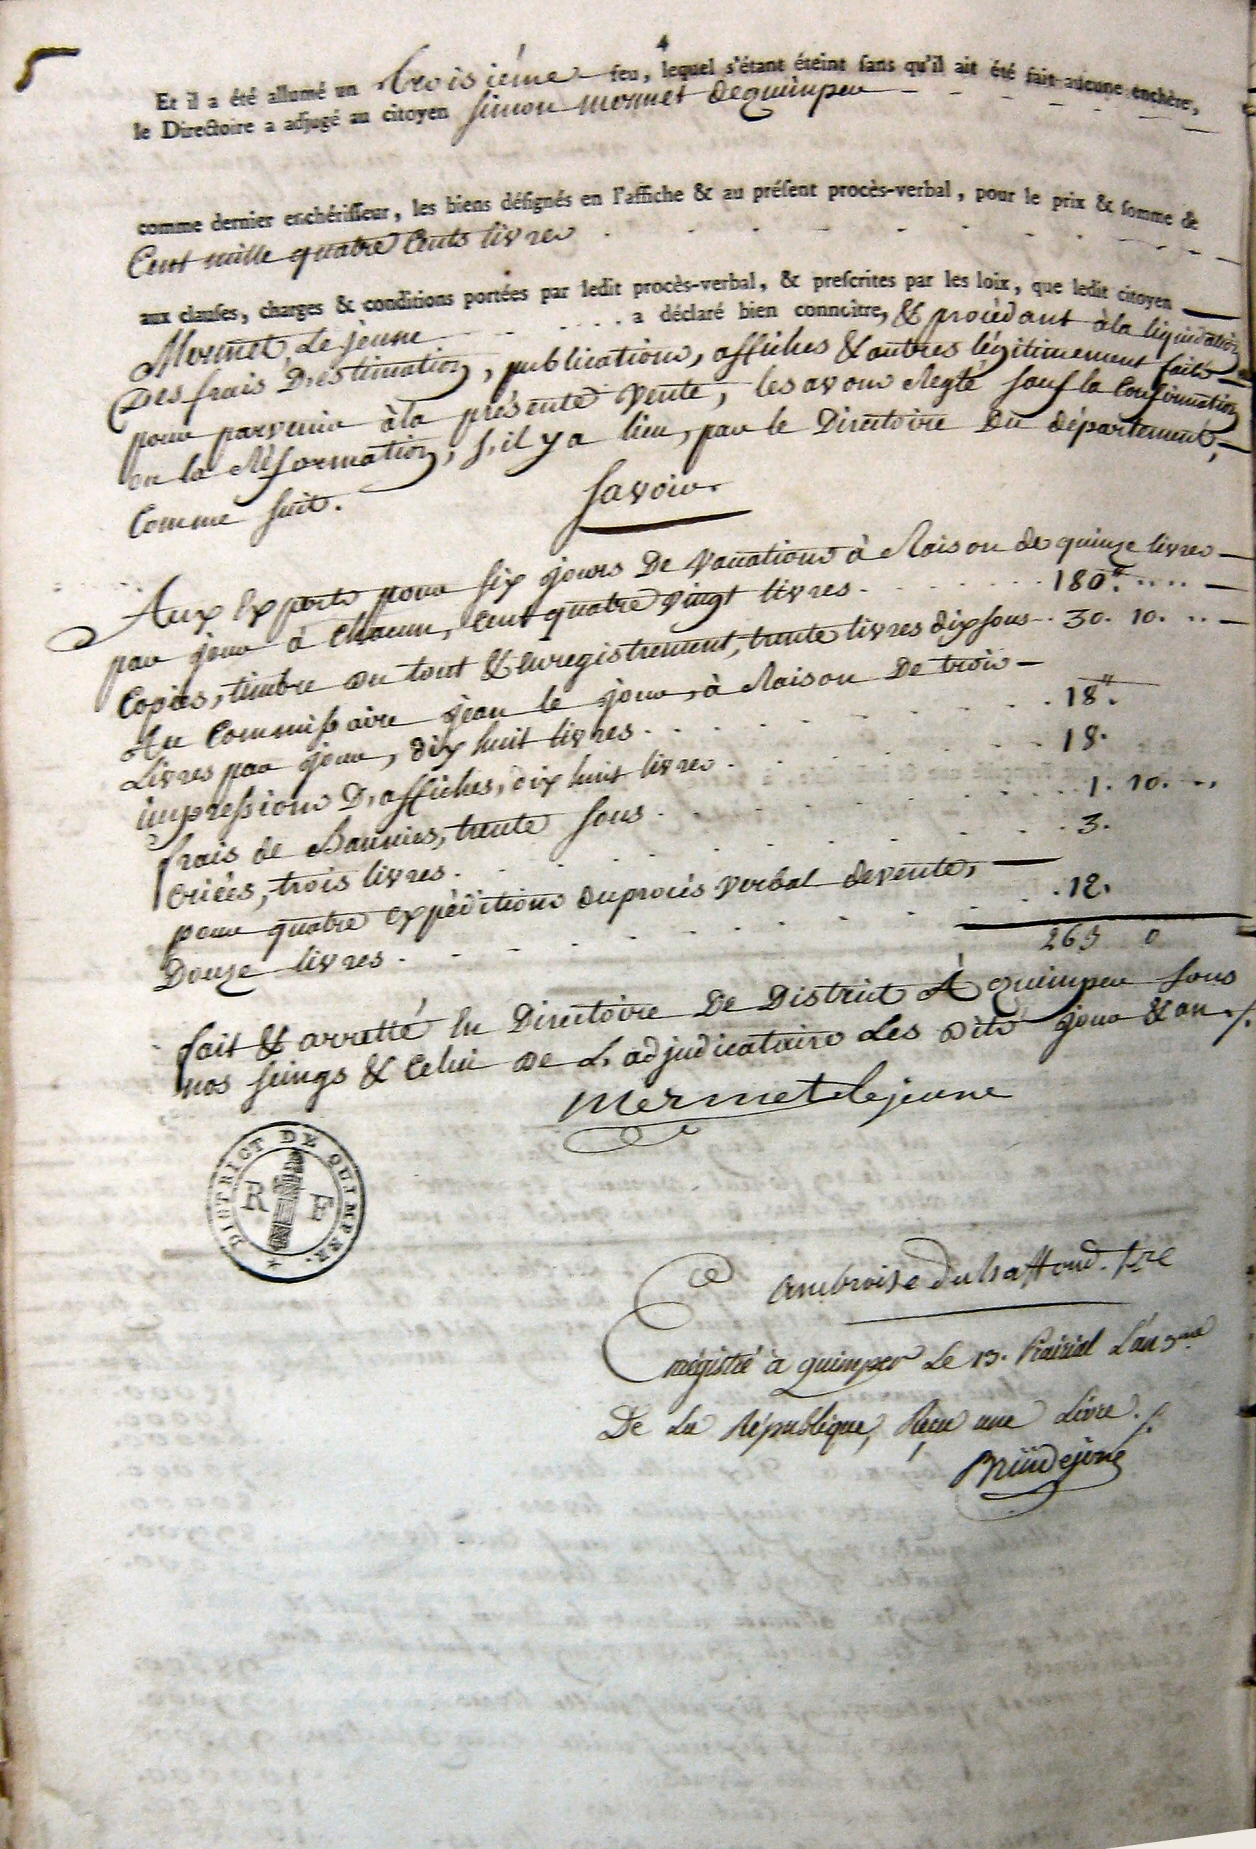 4
Et il a été allumé un troisième feu, lequel s'étant éteint sans qu'il ait été fait aucune enchère,
le Directoire a adjugé au citoyen Simon mermet de quimper
comme dernier enchérisseur, les biens désignés en l'affiche & au présent procès-verbal, pour le prix & somme de
Cent mille quatre Cents livres
aux clauses, charges & conditions portées par ledit procès-verbal, & prescrites par les loix, que ledit citoyen
Mermet Le jeune a déclaré bien connoître, & procédant à la liquidation
Des frais D'estimation, publications, affiches & autres légitimement faits
pour parvenir à la présente vente, les avons Reglé sauf la Confirmation
ou la Réformation, s'il y a lieu, par le Directoire Du département,
Comme suit.
Savoir.
Aux Experts pour six jours De Vacations à Raison de quinze livres
par jour à Chacun, Cent quatre vingt livres. 180.
Copies, timbre du tout & Enregistrement, trente livres dix sous 30. 10.
Au Commissaire jean le jour, à Raison De trois
Livres par jour, dix huit livres. 18.
impressions D'affiches, dix huit livres. 18.
frais de Bannies, trente sous. 1. 10.
Criées, trois livres. 3.
pour quatre Expéditions du procès verbal de vente,
Douze livres. 12.
263 0
fait & arretté En Directoire De District A Quimper sous
nos seings & Celui De L'adjudicataire Les Dits jour & an ./.
Mermet Le jeune
DISTRICT DE QUIMPER.
R F
Ambroise du haffond. Sre
Enregistré à quimper Le 13. Prairial L'an 3me
De La République, Reçu une Livre ./.